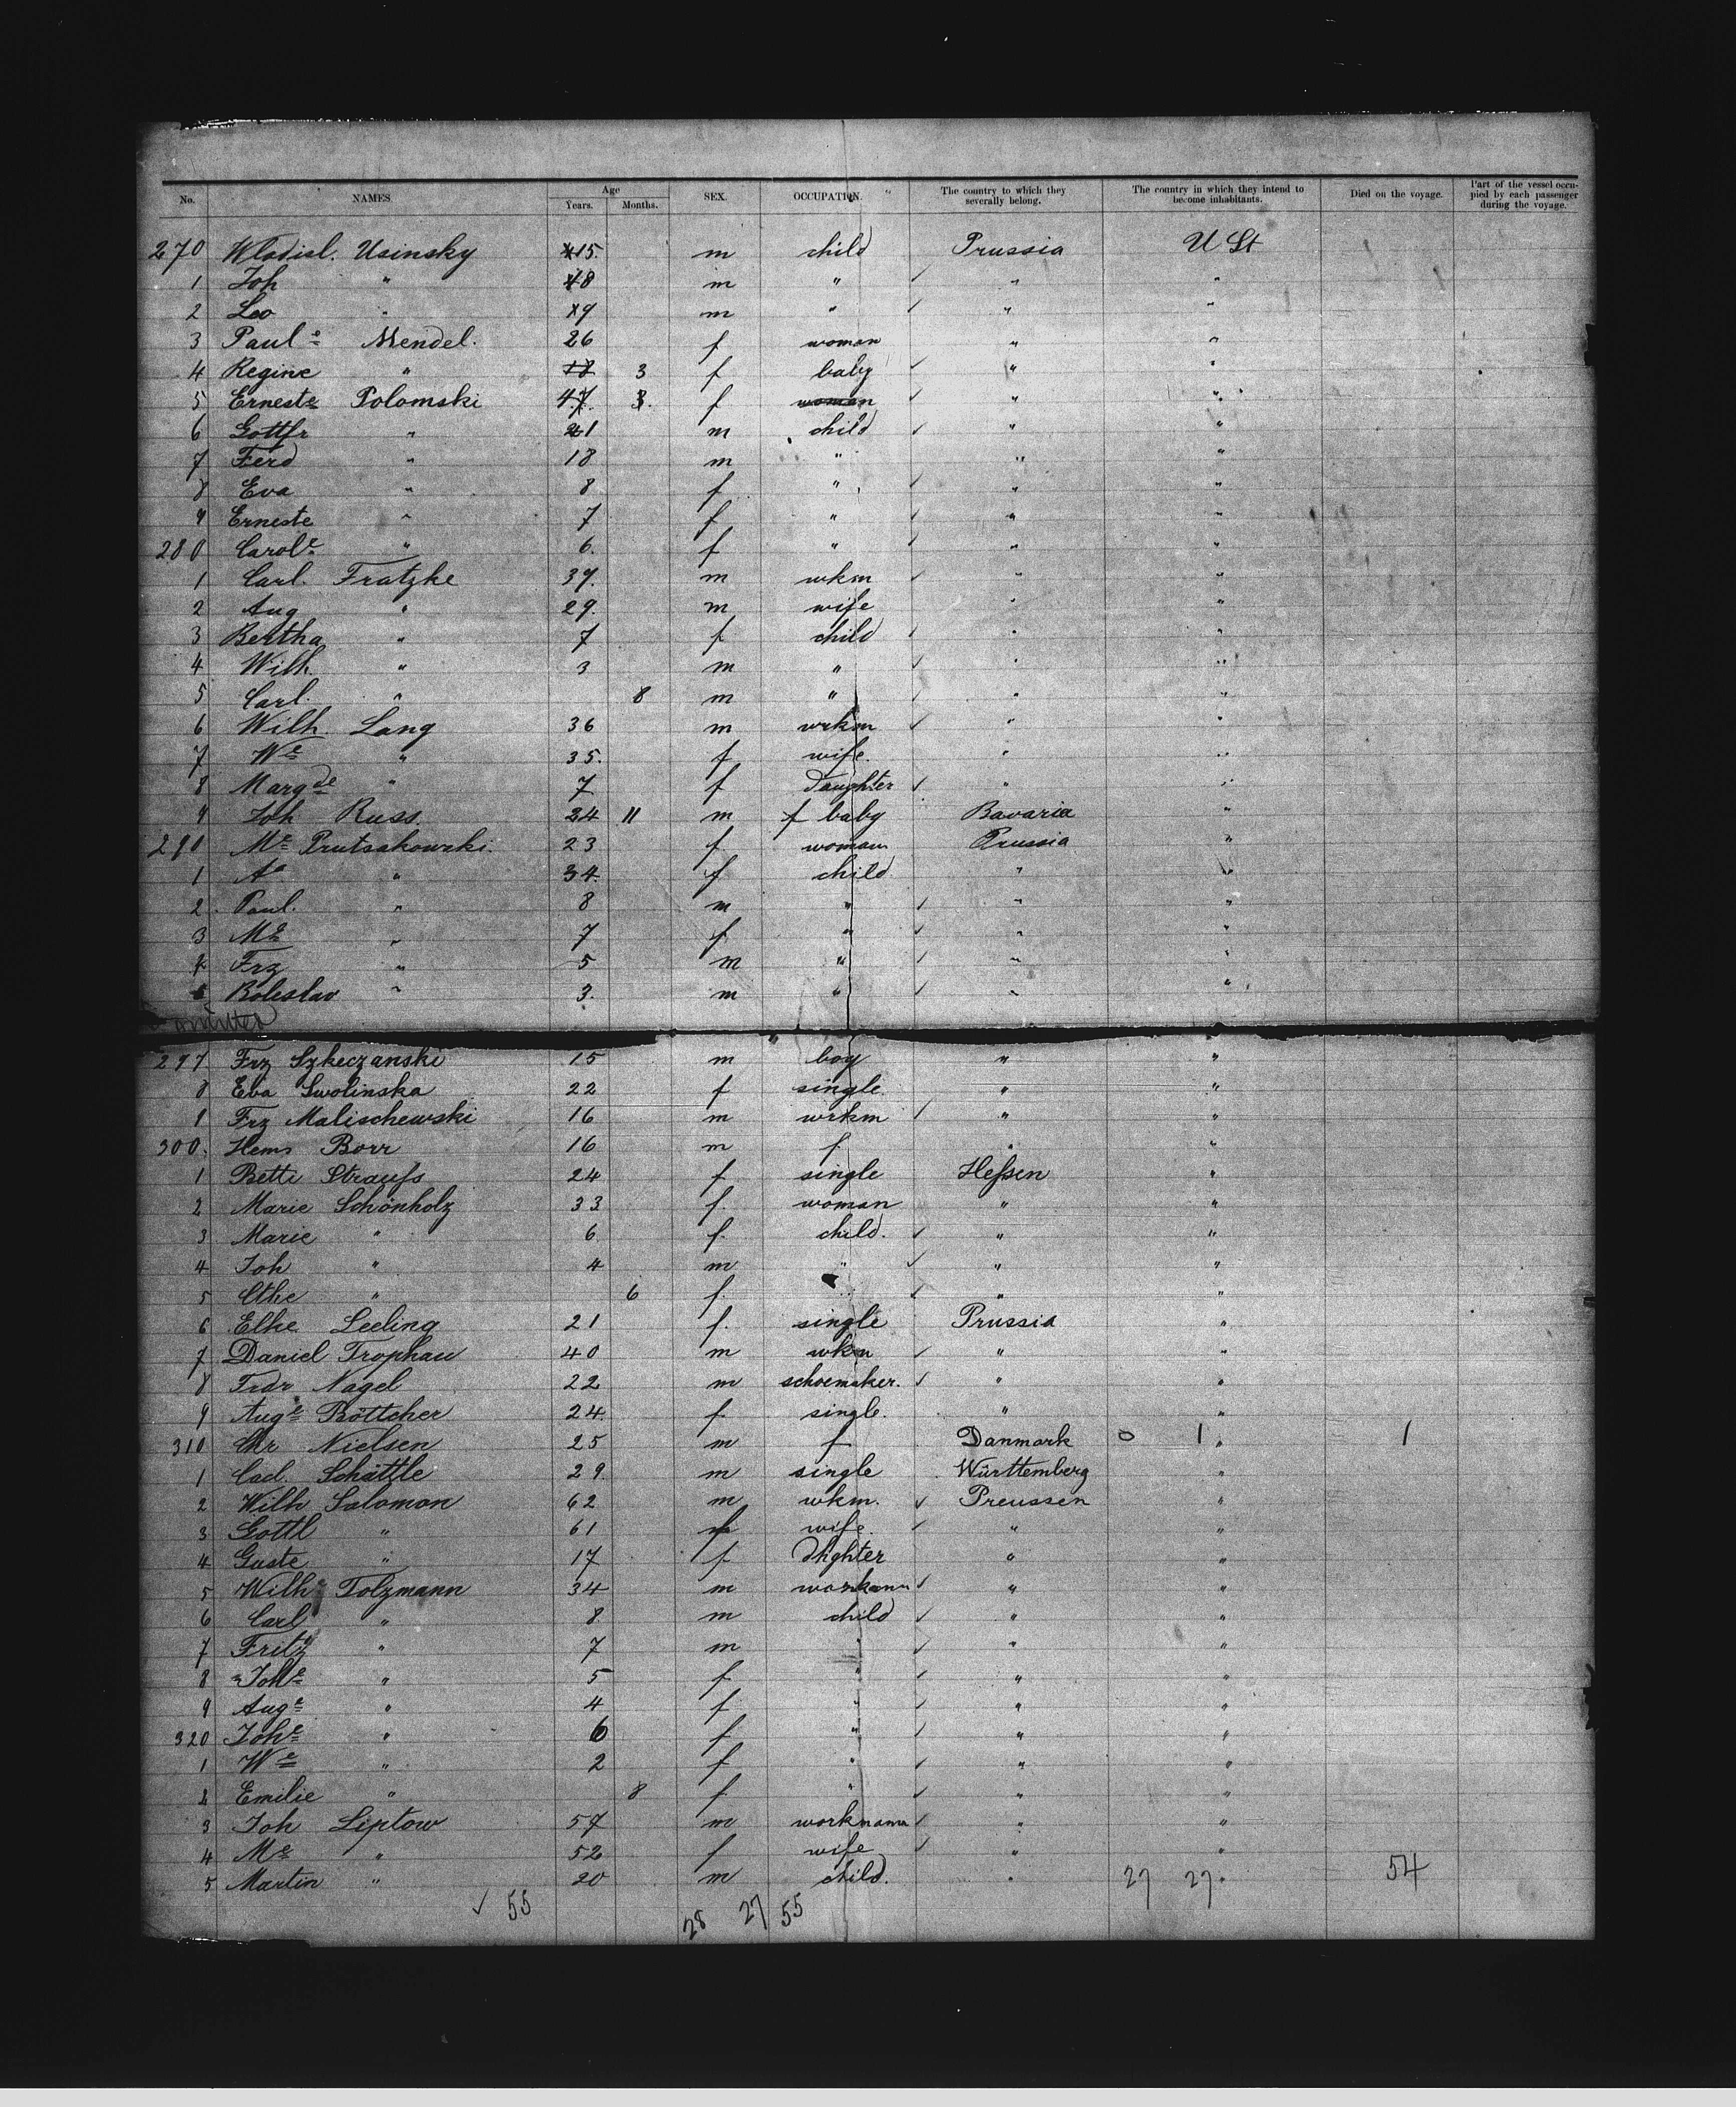 No. NAMES Age Years. Months. SEX. OCCUPATION. The country to which they severally belong. The country in which they intend to become inhabitants. Died on the voyage. Part of the vessel occupied by each passenger during the voyage.
270 Wladisl. Usinsky 15. m child Prussia U St
1 Joh " 8 m " " "
2 Leo " 9 m " " "
3 Paul e Mendel. 26 f woman " "
4 Regine " 3 f baby " "
5 Ernest e Polomski 47. 3. f woman " "
6 Gottfr " 21 m child " "
7 Ferd " 18 m " " "
8 Eva " 8 f " " "
9 Erneste " 7 f " " "
280 Carol e " 6. f " " "
1 Carl. Fratzke 39. m wkm " "
2 Aug " 29. m wife " "
3 Bertha " 7 f child " "
4 Wilh. " 3 m " " "
5 Carl. " 8 m " " "
6 Wilh. Lang 36 m wrkm " "
7 W e " 35. f wife. " "
8 Marg de " 7 f daughter " "
9 Joh Russ. 24 11 m f baby Bavaria "
290 M e Prutsakowski. 23 f woman Prussia "
1 A a " 34. f child " "
2. Paul. " 8 m " " "
3 M e " 7 f " " "
4 Frz " 5 m " " "
Boleslav " 3. m " " "
omitted
297 Frz Szkeczanski 15 m boy " "
8 Eva Swolinska 22 f single. " "
9 Frz Malischewski 16 m wrkm " "
300. Hems Borr 16 m f " "
1 Betti Straufs 24 f single Hefsen "
2 Marie Schönholz 33 f. woman " "
3 Marie " 6 f. child. " "
4 Joh " 4 m " " "
5 Cthe " 6 f. " " "
6 Elke Leeling 21 f. single Prussia "
7 Daniel Trophau 40 m wkm " "
8 Frdr Nagel 22 m schoemaker. " "
9 Aug e Böttcher 24. f single. " "
310 Chr Nielsen 25 m f Danmark 0 1 " 1
1 Cad. Schättle 29. m single Württemberg "
2 Wilh Salomon 62 m wkm. Preussen "
3 Gottl " 61 f wife. " "
4 Guste " 17 f dhghter " "
5 Wilh Tolzmann 34 m workmann " "
6 Carl " 8. m child " "
7 Fritz " 7 m " " "
8 Joh e " 5 f " " "
9 Aug e " 4 f " " "
320 Joh e " 6 f " " "
1 W e " 2 f " " "
2 Emilie " 8 f " " "
3 Joh Liptow 57 m workmann " "
4 M e " 52 f wife " "
5 Martin " 20 m child. " 27 27 " 54
55 28 27 55